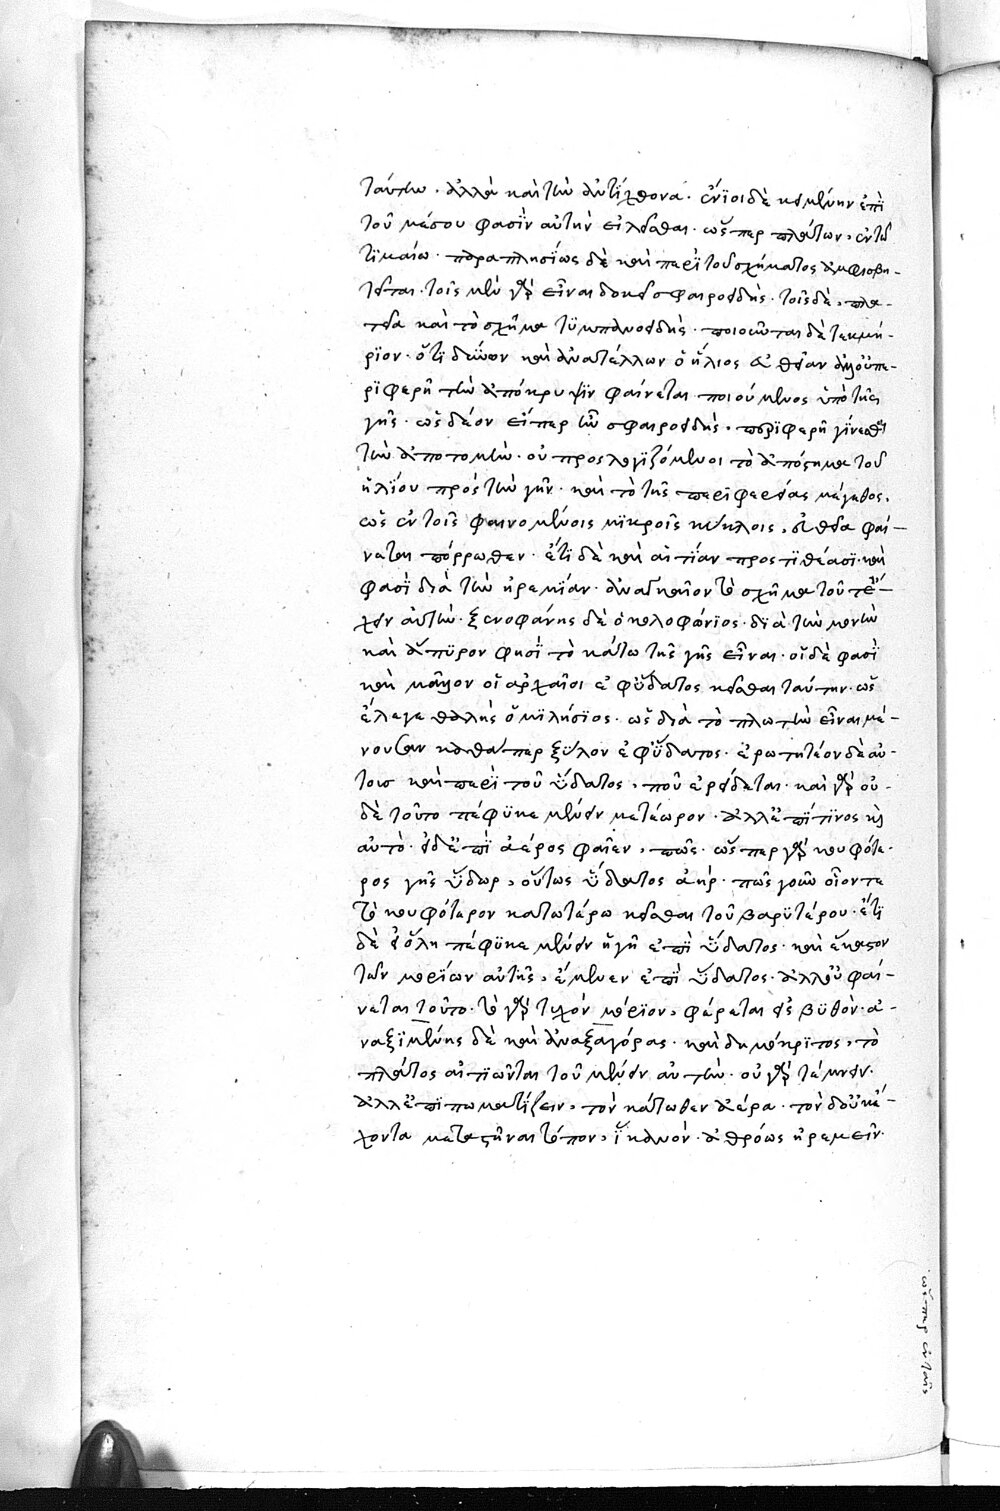 ταύτην. ἀλλὰ καὶ τὴν ἀντίχθονα. ἔνϊοι δὲ κειμένην ἐπὶ
τοῦ μέσου φασὶν αὐτὴν εἰλεῖσθαι. ὥσπερ πλάτων, ἐν τῶ
τϊμαίω. παραπλησίως δὲ καὶ περὶ τοῦ σχήματος ἀμφισβη-
τεῖται. τοῖς μὲν γὰρ εἶναι δοκεῖ σφαιροειδής. τοῖς δὲ, πλα-
τεῖα καὶ τὸ σχῆμα τϋμπανοειδής. ποιοῦνται δὲ τεκμή-
ρϊον. ὅτϊ δύνων καὶ ἀνατέλλων ὁ ἥλιος εὐθεῖαν ἀλλ' οὐ πε-
ρϊφερῆ τὴν ἀπόκρυψϊν φαίνεται ποιούμενος ὑπὸ τῆς
γῆς. ὡς δέον εἴπερ ἦν σφαιροειδής, περϊφερῆ γίνεσθαι
τὴν ἀποτομήν. οὐ προσλογϊζόμενοι τὸ ἀπόστημα τοῦ
ἡλίου πρὸς τὴν γῆν. καὶ τὸ τῆς περϊφερείας μέγεθος,
ὡς ἐν τοῖς φαινομένοις μϊκροῖς κύκλοις, εὐθεῖα φαί-
νεται πόρρωθεν. ἔτϊ δὲ καὶ αἰτίαν προστϊθέασϊ. καὶ
φασὶ διὰ τὴν ἠρεμίαν. ἀναγκαῖον τὸ σχῆμα τοῦτ' ἔ-
χειν αὐτήν. ξενοφάνης δὲ ὁ κολοφώνϊος. δϊὰ τὴν μονὴν
καὶ ἄπϋρον φησὶ τὸ κάτω τῆς γῆς εἶναι. οἱ δὲ φασὶ
καὶ μᾶλλον οἱ ἀρχαῖοι ἐφ' ὕδατος κεῖσθαι ταύτην. ὡς
ἔλεγε θαλῆς ὁ μϊλήσϊος. ὡς διὰ τὸ πλωτὴν εἶναι μέ-
νουσαν καθάπερ ξύλον ἐφ' ὕδατος. ἐρωτητέον δὲ αὐ-
τοισ καὶ περὶ τοῦ ὕδατος, ποῦ ἐρείδεται. καὶ γὰρ οὐ-
δὲ τοῦτο πέφϋκε μένειν μετέωρον. ἀλλ' ἐπί τϊνος καὶ
αὐτό. εἰ δ' ἐπὶ ἀέρος φαῖεν, πῶς. ὥσπερ γὰρ κουφότε-
ρος γῆς ὕδωρ, οὕτως ὕδατος ἀήρ. πῶς γοῦν οἷόν τε
τὸ κουφότερον κατωτέρω κεῖσθαι τοῦ βαρϋτέρου. ἔτϊ
δὲ εἰ ὅλη πέφϋκε μένειν ἡ γῆ ἐπὶ ὕδατος. καὶ ἕκαστον
τῶν μορίων αὐτῆς, ἔμενεν ἐπὶ ὕδατος. ἀλλ' οὐ φαί-
νεται τοῦτο. τὸ γὰρ τυχὸν μόρϊον, φέρεται εἰς βϋθόν. ἀ-
ναξϊμένης δὲ καὶ ἀναξαγόρας. καὶ δημόκρϊτος, τὸ
πλάτος αἰτϊῶνται τοῦ μένειν αὐτήν. οὐ γὰρ τέμνειν.
ἀλλ' ἐπϊπωματίζειν, τὸν κάτωθεν ἀέρα. τὸν δ' οὐκ ἔ-
χοντα μεταστῆναι τόπον, ἱκανόν. ἀθρόως ἠρεμεῖν.
ὥσπερ ἐν ταῖς